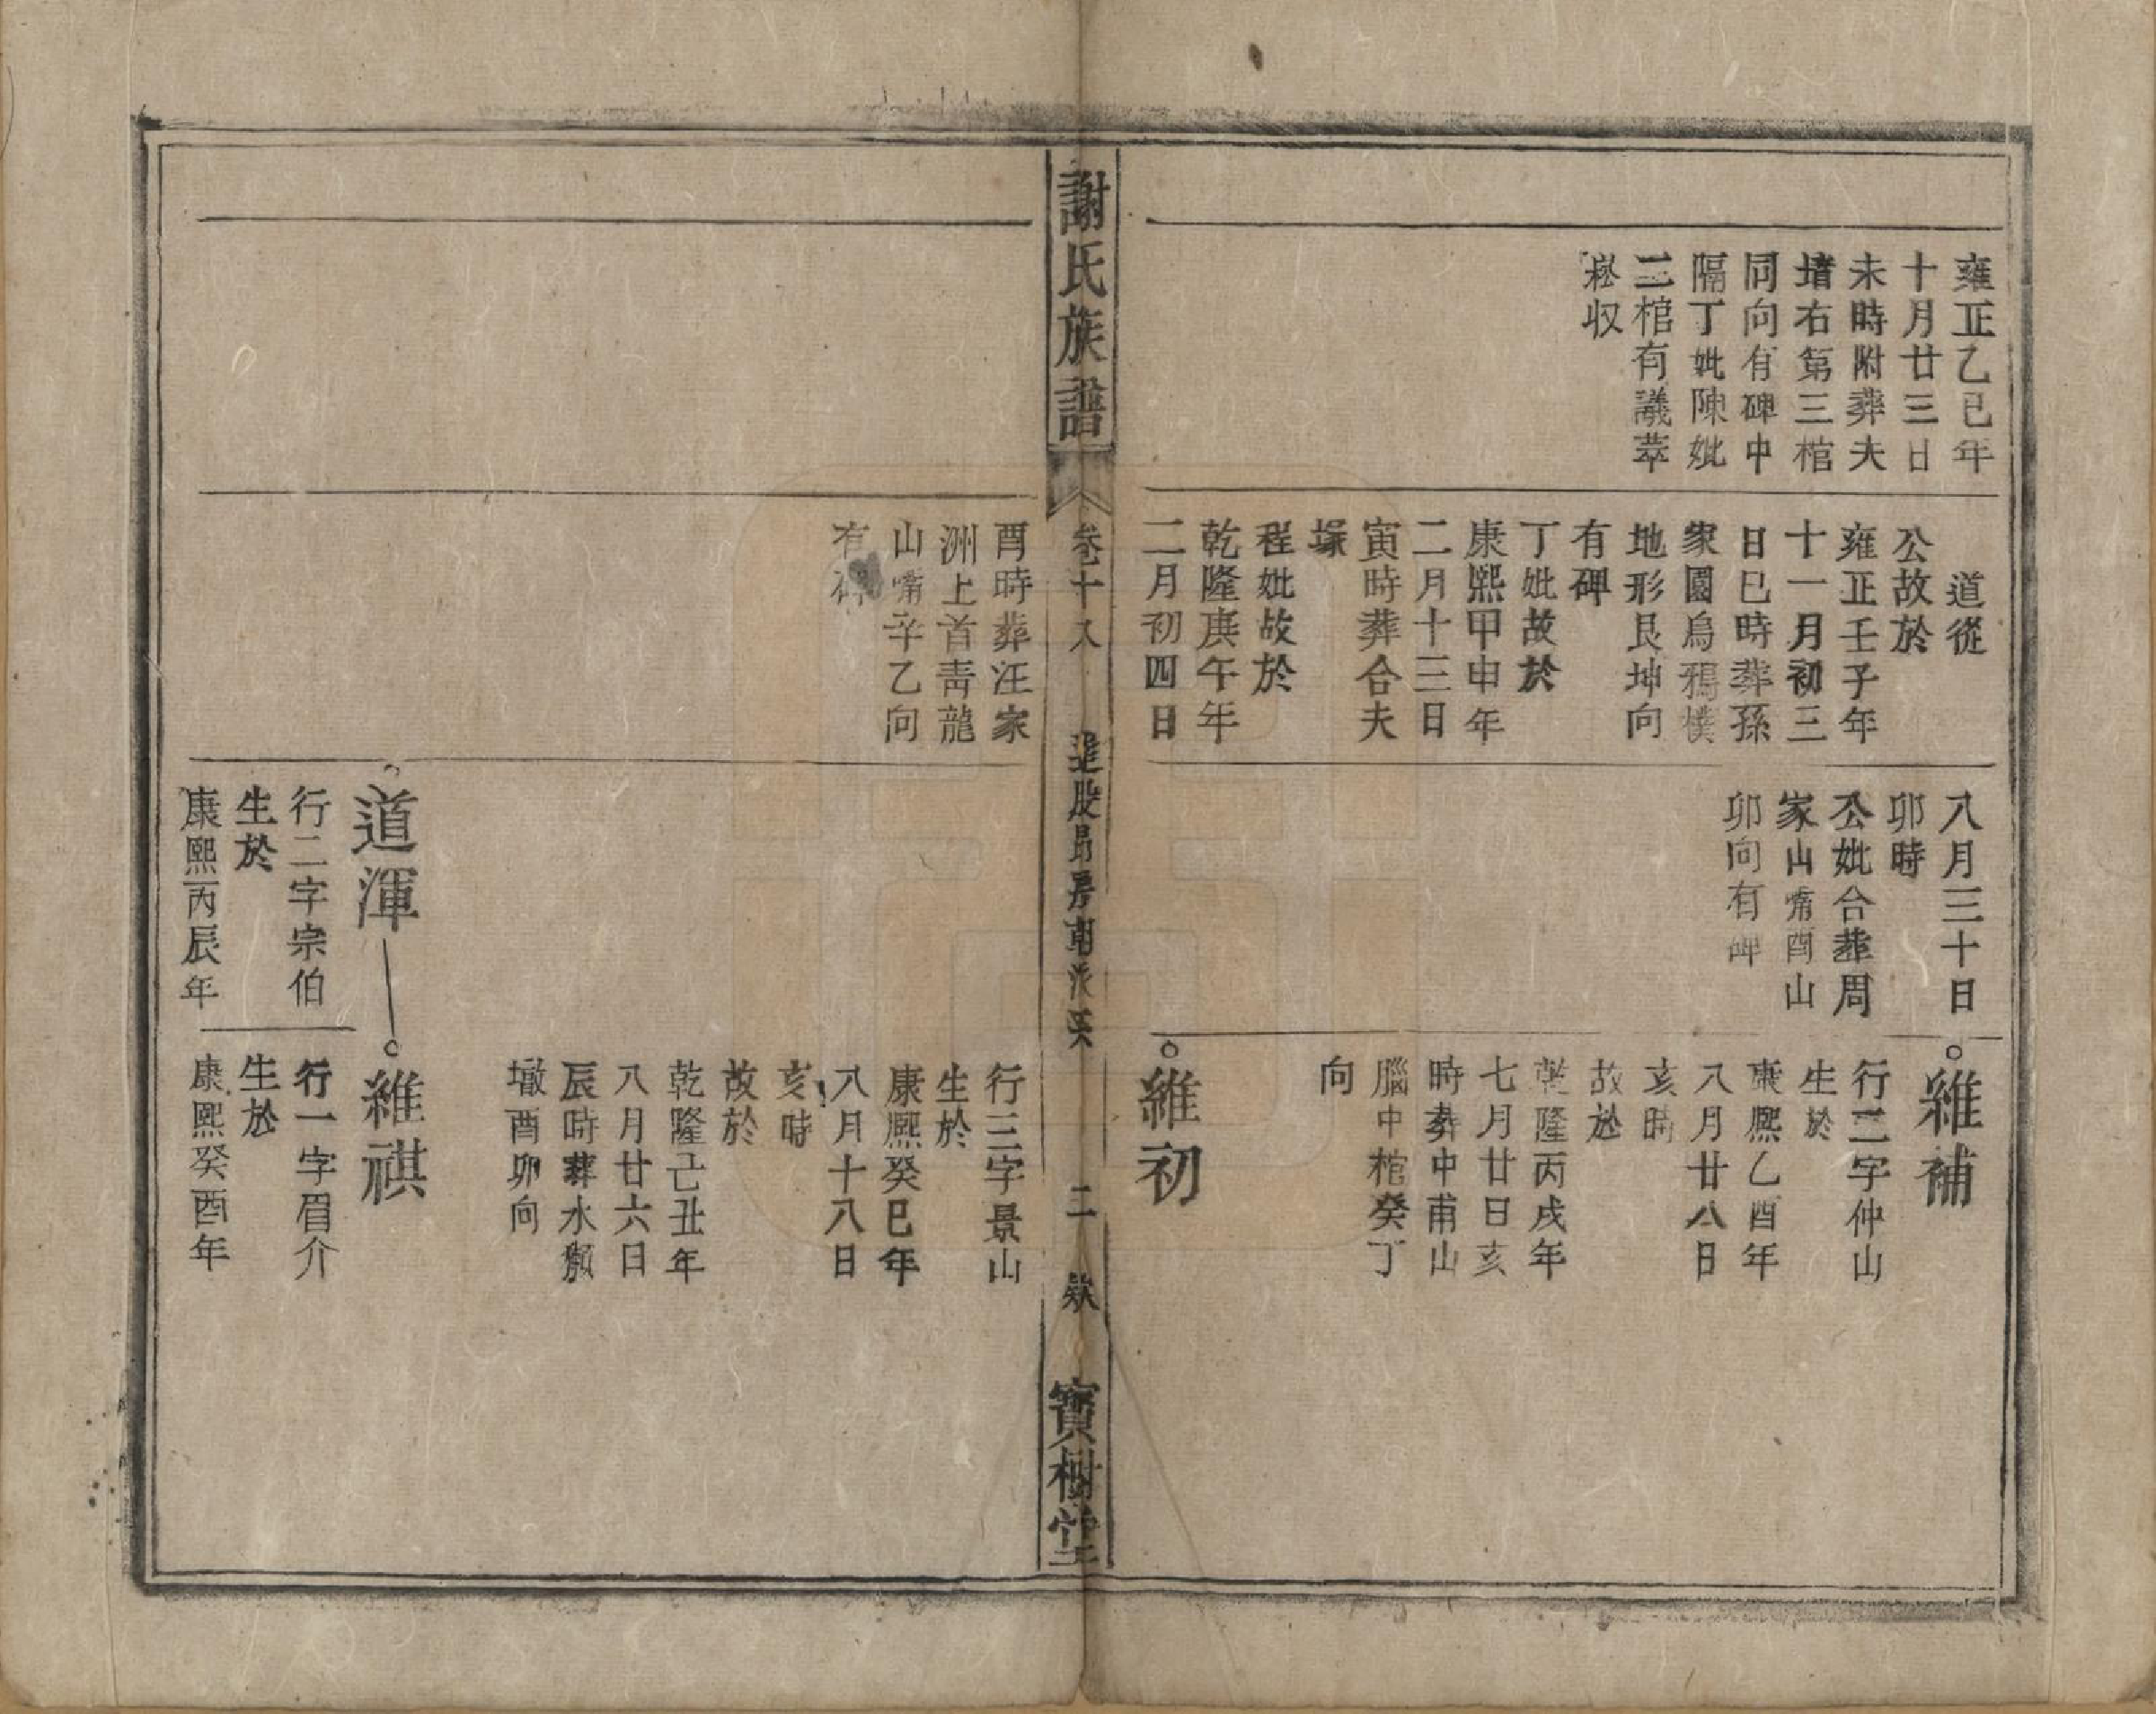 雍正乙巳年
十月廿三日
未時附葬夫
墳右第三棺
同向有碑中
隔丁妣陳妣
三棺有議萃
崧収
道從
公故於
雍正壬子年
十一月初三
日巳時葬孫
家園烏鴉樸
地形艮坤向
有碑
丁妣故於
康熙甲申年
二月十三日
寅時葬合夫
塚
程妣故於
乾隆庚午年
二月初四日
八月三十日
卯時
公妣合葬周
家山嘴酉山
卯向有碑
維補
行二字仲山
生於
康熙乙酉年
八月廿八日
亥時
故於
乾隆丙戌年
七月廿日亥
時葬中甫山
腦中棺癸丁
向
維初
謝氏族譜
卷十八
進股昌房南派
二
欵
寶樹堂
酉時葬汪家
洲上首靑龍
山嘴辛乙向
有碑
行三字景山
生於
康熙癸巳年
八月十八日
亥時
故於
乾隆己丑年
八月廿六日
辰時葬水瀨
墩酉卯向
道渾
行二字宗伯
生於
康熙丙辰年
維祺
行一字眉介
生於
康熙癸酉年